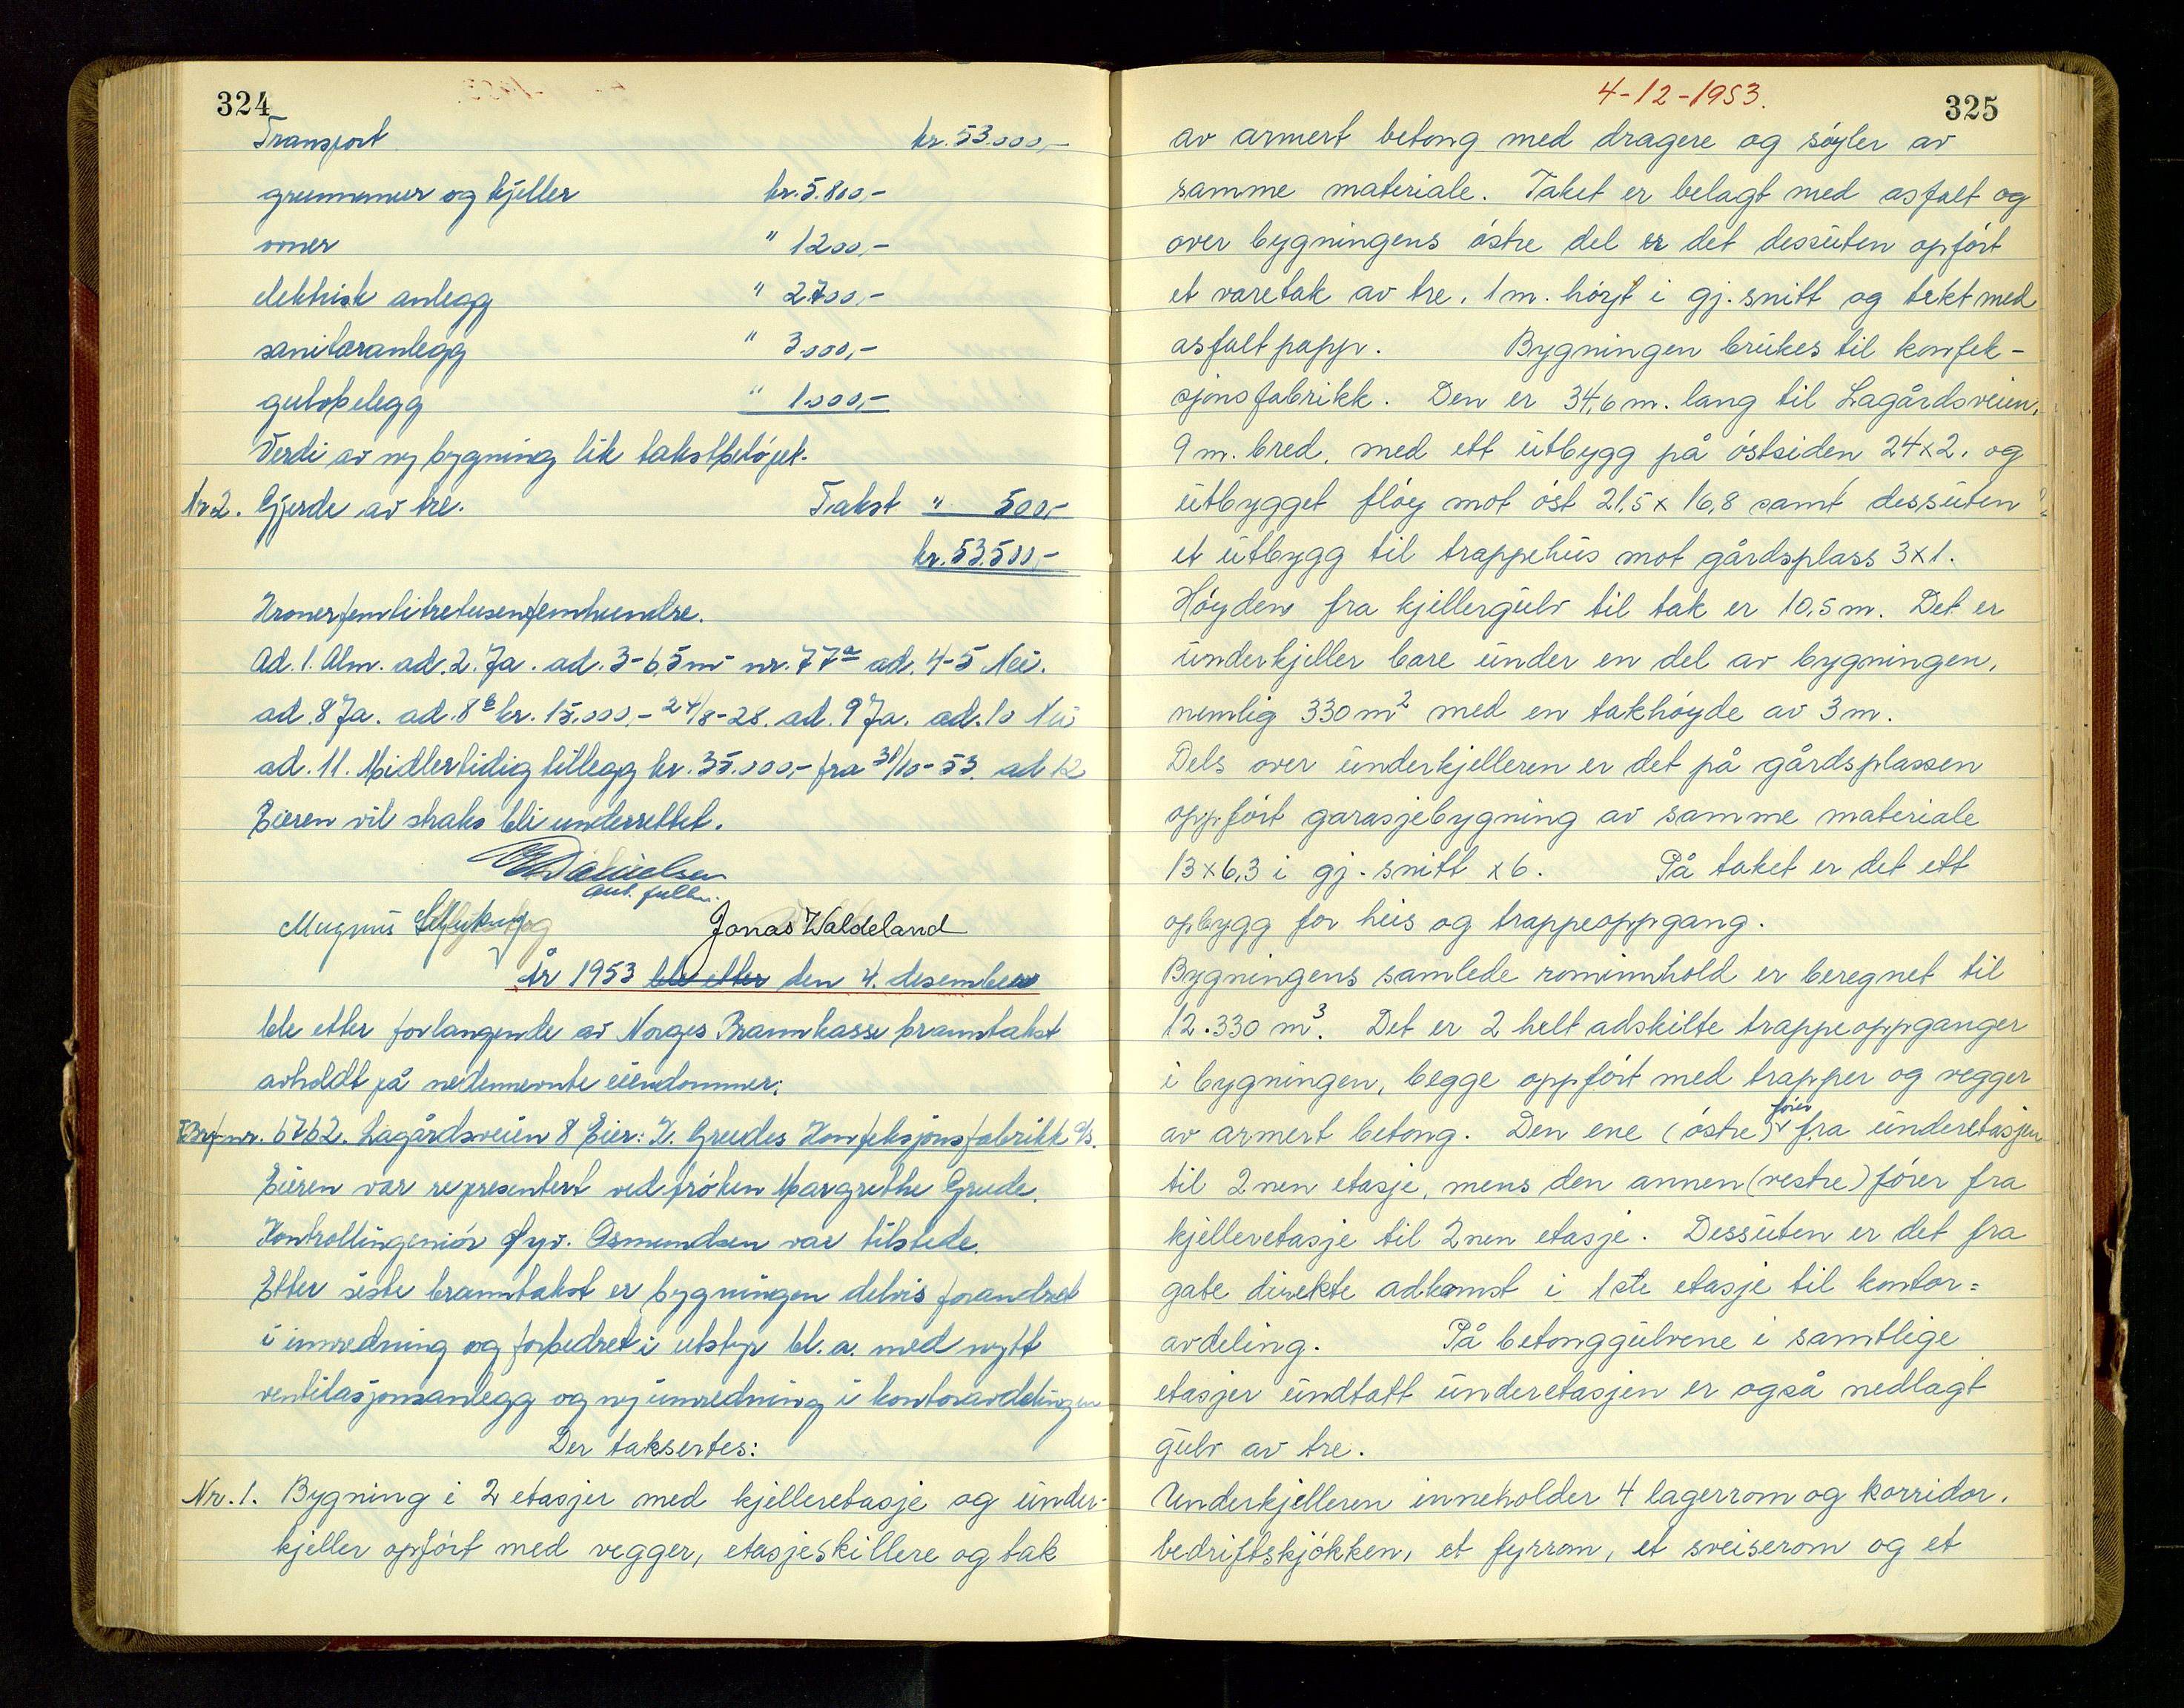 324
Transport kr. 53.000,-
grunnmur og kjeller kr. 5.800,-
ovner " 1200,-
elektrisk anlegg " 2700,-
sanitæranlegg " 3000,-
gulvbelegg " 1.000,-
Verdi av ny bygning lik takstbeløpet.
Nr 2. Gjerde av tre. Takst " 500,-
kr. 53.500,-
Kroner femtitretusenfemhundre.
Ad. 1. Alm. ad. 2. Ja. ad. 3 - 6,5 m - nr. 77a ad. 4-5 Nei.
ad. 8 Ja. ad. 8b kr. 15.000,- 24/8-28. ad. 9 Ja. ad. 10 Nei
ad. 11. Midlertidig tillegg kr. 35.000,- fra 31/10-53. ad 12
Eieren vil straks bli underrettet.
Danielsen
aut. fullm.
Magnus Jonas Waldeland
År 1953 ble etter den 4. desember
ble etter forlangende av Norges Brannkasse branntakst
avholdt på nedennevnte eiendommer:
Brf-nr. 6762. Lagårdsveien 8 Eier: K. Grudes Konfeksjonsfabrikk A/S.
Eieren var representert ved frøken Margrethe Grude.
Kontrollingeniør Syv. Osmundsen var tilstede.
Etter siste branntakst er bygningen delvis forandret
i innredning og forbedret i utstyr bl. a. med nytt
ventilasjonsanlegg og ny innredning i kontoravdelingen
Der taksertes:
Nr. 1. Bygning i 2 etasjer med kjelleretasje og under-
kjeller opført med vegger, etasjeskillere og tak
4-12-1953.
325
av armert betong med dragere og søyler av
samme materiale. Taket er belagt med asfalt og
over bygningens østre del er det dessuten opført
et varetak av tre, 1 m. høyt i gj. snitt og tekt med
asfaltpapp. Bygningen brukes til konfek-
sjonsfabrikk. Den er 34,6 m. lang til Lagårdsveien,
9 m. bred, med ett utbygg på østsiden 24 x 2, og
utbygget fløy mot øst 21,5 x 16,8 samt dessuten
et utbygg til trappehus mot gårdsplass 3 x 1.
Høyden fra kjellergulv til tak er 10,5 m. Det er
underkjeller bare under en del av bygningen,
nemlig 330 m² med en takhøyde av 3 m.
Dels over underkjelleren er det på gårdsplassen
oppført garasjebygning av samme materiale
13 x 6,3 i gj. snitt x 6. På taket er det ett
opbygg for heis og trappeoppgang.
Bygningens samlede rominnhold er beregnet til
12.330 m³. Det er 2 helt adskilte trappeoppganger
i bygningen, begge oppført med trapper og vegger
av armert betong. Den ene (østre) fører fra underetasjen
til 2nen etasje, mens den annen (vestre) fører fra
kjelleretasje til 2nen etasje. Dessuten er det fra
gate direkte adkomst i 1ste etasje til kontor=
avdeling. På betonggulvene i samtlige
etasjer undtatt underetasjen er også nedlagt
gulv av tre.
Underkjelleren inneholder 4 lagerrom og korridor,
bedriftskjøkken, et fyrrom, et sveiserom og et